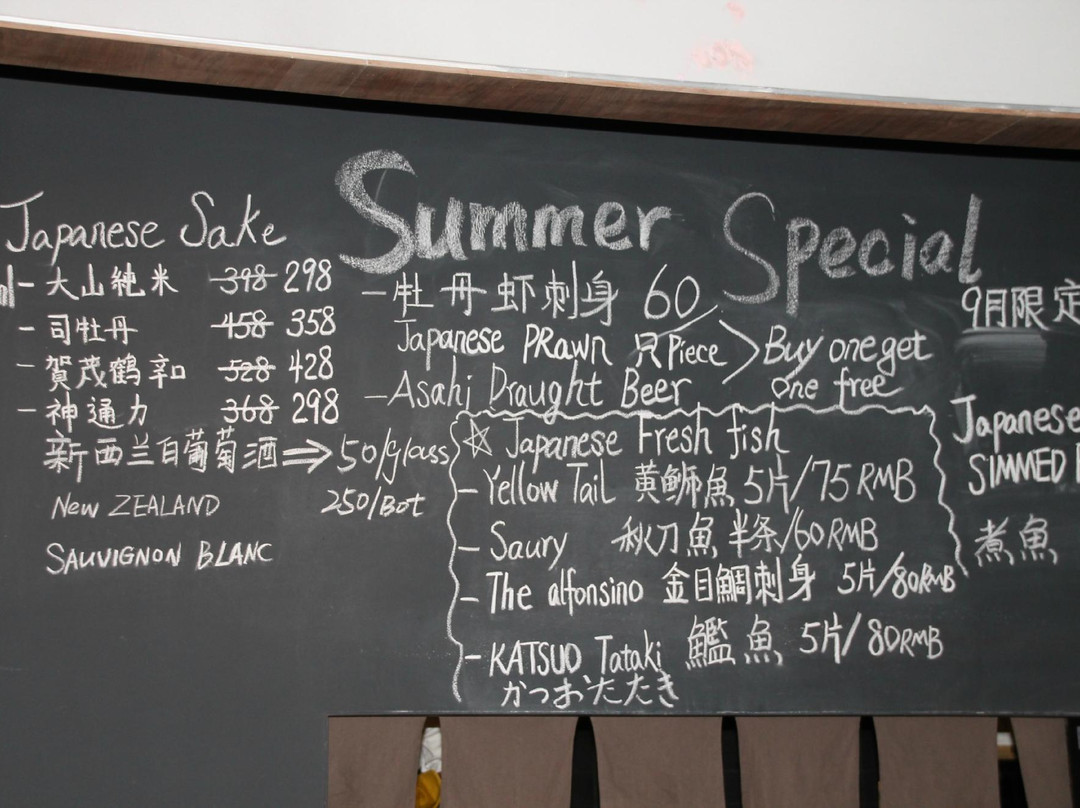 Summer Special
Japanese Sake
- 大山純米 398 298
- 司牡丹 458 358
- 賀茂鶴辛口 528 428
- 神通力 368 298
新西兰白葡萄酒⇒50/glass
New ZEALAND 250/Bot
SAUVIGNON BLANC
- 牡丹虾刺身 60/
Japanese PRawn 只Piece > Buy one get
- Asahi Draught Beer one free
☆ Japanese Fresh fish
- Yellow Tail 黄鰤魚 5片/75 RMB
- Saury 秋刀魚 半条/60RMB
- The alfonsino 金目鯛刺身 5片/80RMB
- KATSUO Tataki 鑑魚 5片/80RMB
かつおたたき
9月限定
Japanese
SIMMED
煮魚